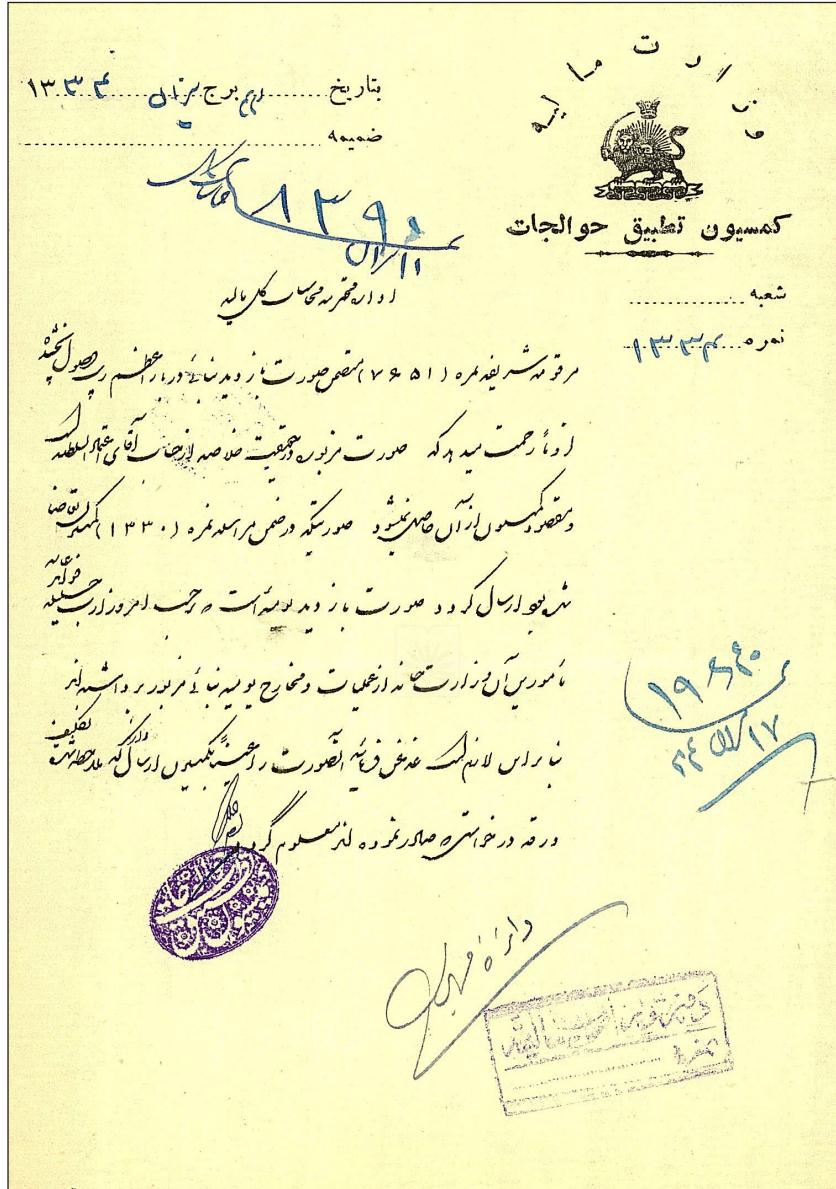 وزارت مالیه
کمسیون تطبیق حوالجات
بتاریخ برج میزان ۱۳۳۴
ضمیمه
۸۳۹۵
۱۱ میزان
شعبه
نمره ۱۳۳۴
اداره محترمه محاسبات کل مالیه
مرقومه شریفه نمره (۷۶۵۱) متضمن صورت بازدید بنائی دربار اعظم وصول بخشیده
زحمت میدهد که صورت مزبوره در حقیقت خلاصه از حساب آقای اعتماد السلطنه
و مقصود کمسیون از آن حاصل نمیشود صورتیکه در ضمن مراسله نمره (۱۳۳۰) تقاضا
شده بود ارسال گردد صورت بازدید یومیه است که بر حسب امر وزارت جلیله فواید عامه
مأمورین آن وزارت خانه از عملیات و مخارج یومیه بنائی مزبور برداشته‌اند
بنابراین لازم است قدغن فرمائید آنصورت را عیناً بکمسیون ارسال دارند که ملاحظه شده تکلیف
ورقه درخواستی که صادر نموده‌اند معلوم گردد
۱۹۶۴۰
۱۷ میزان ۳۴
دائره
نمره